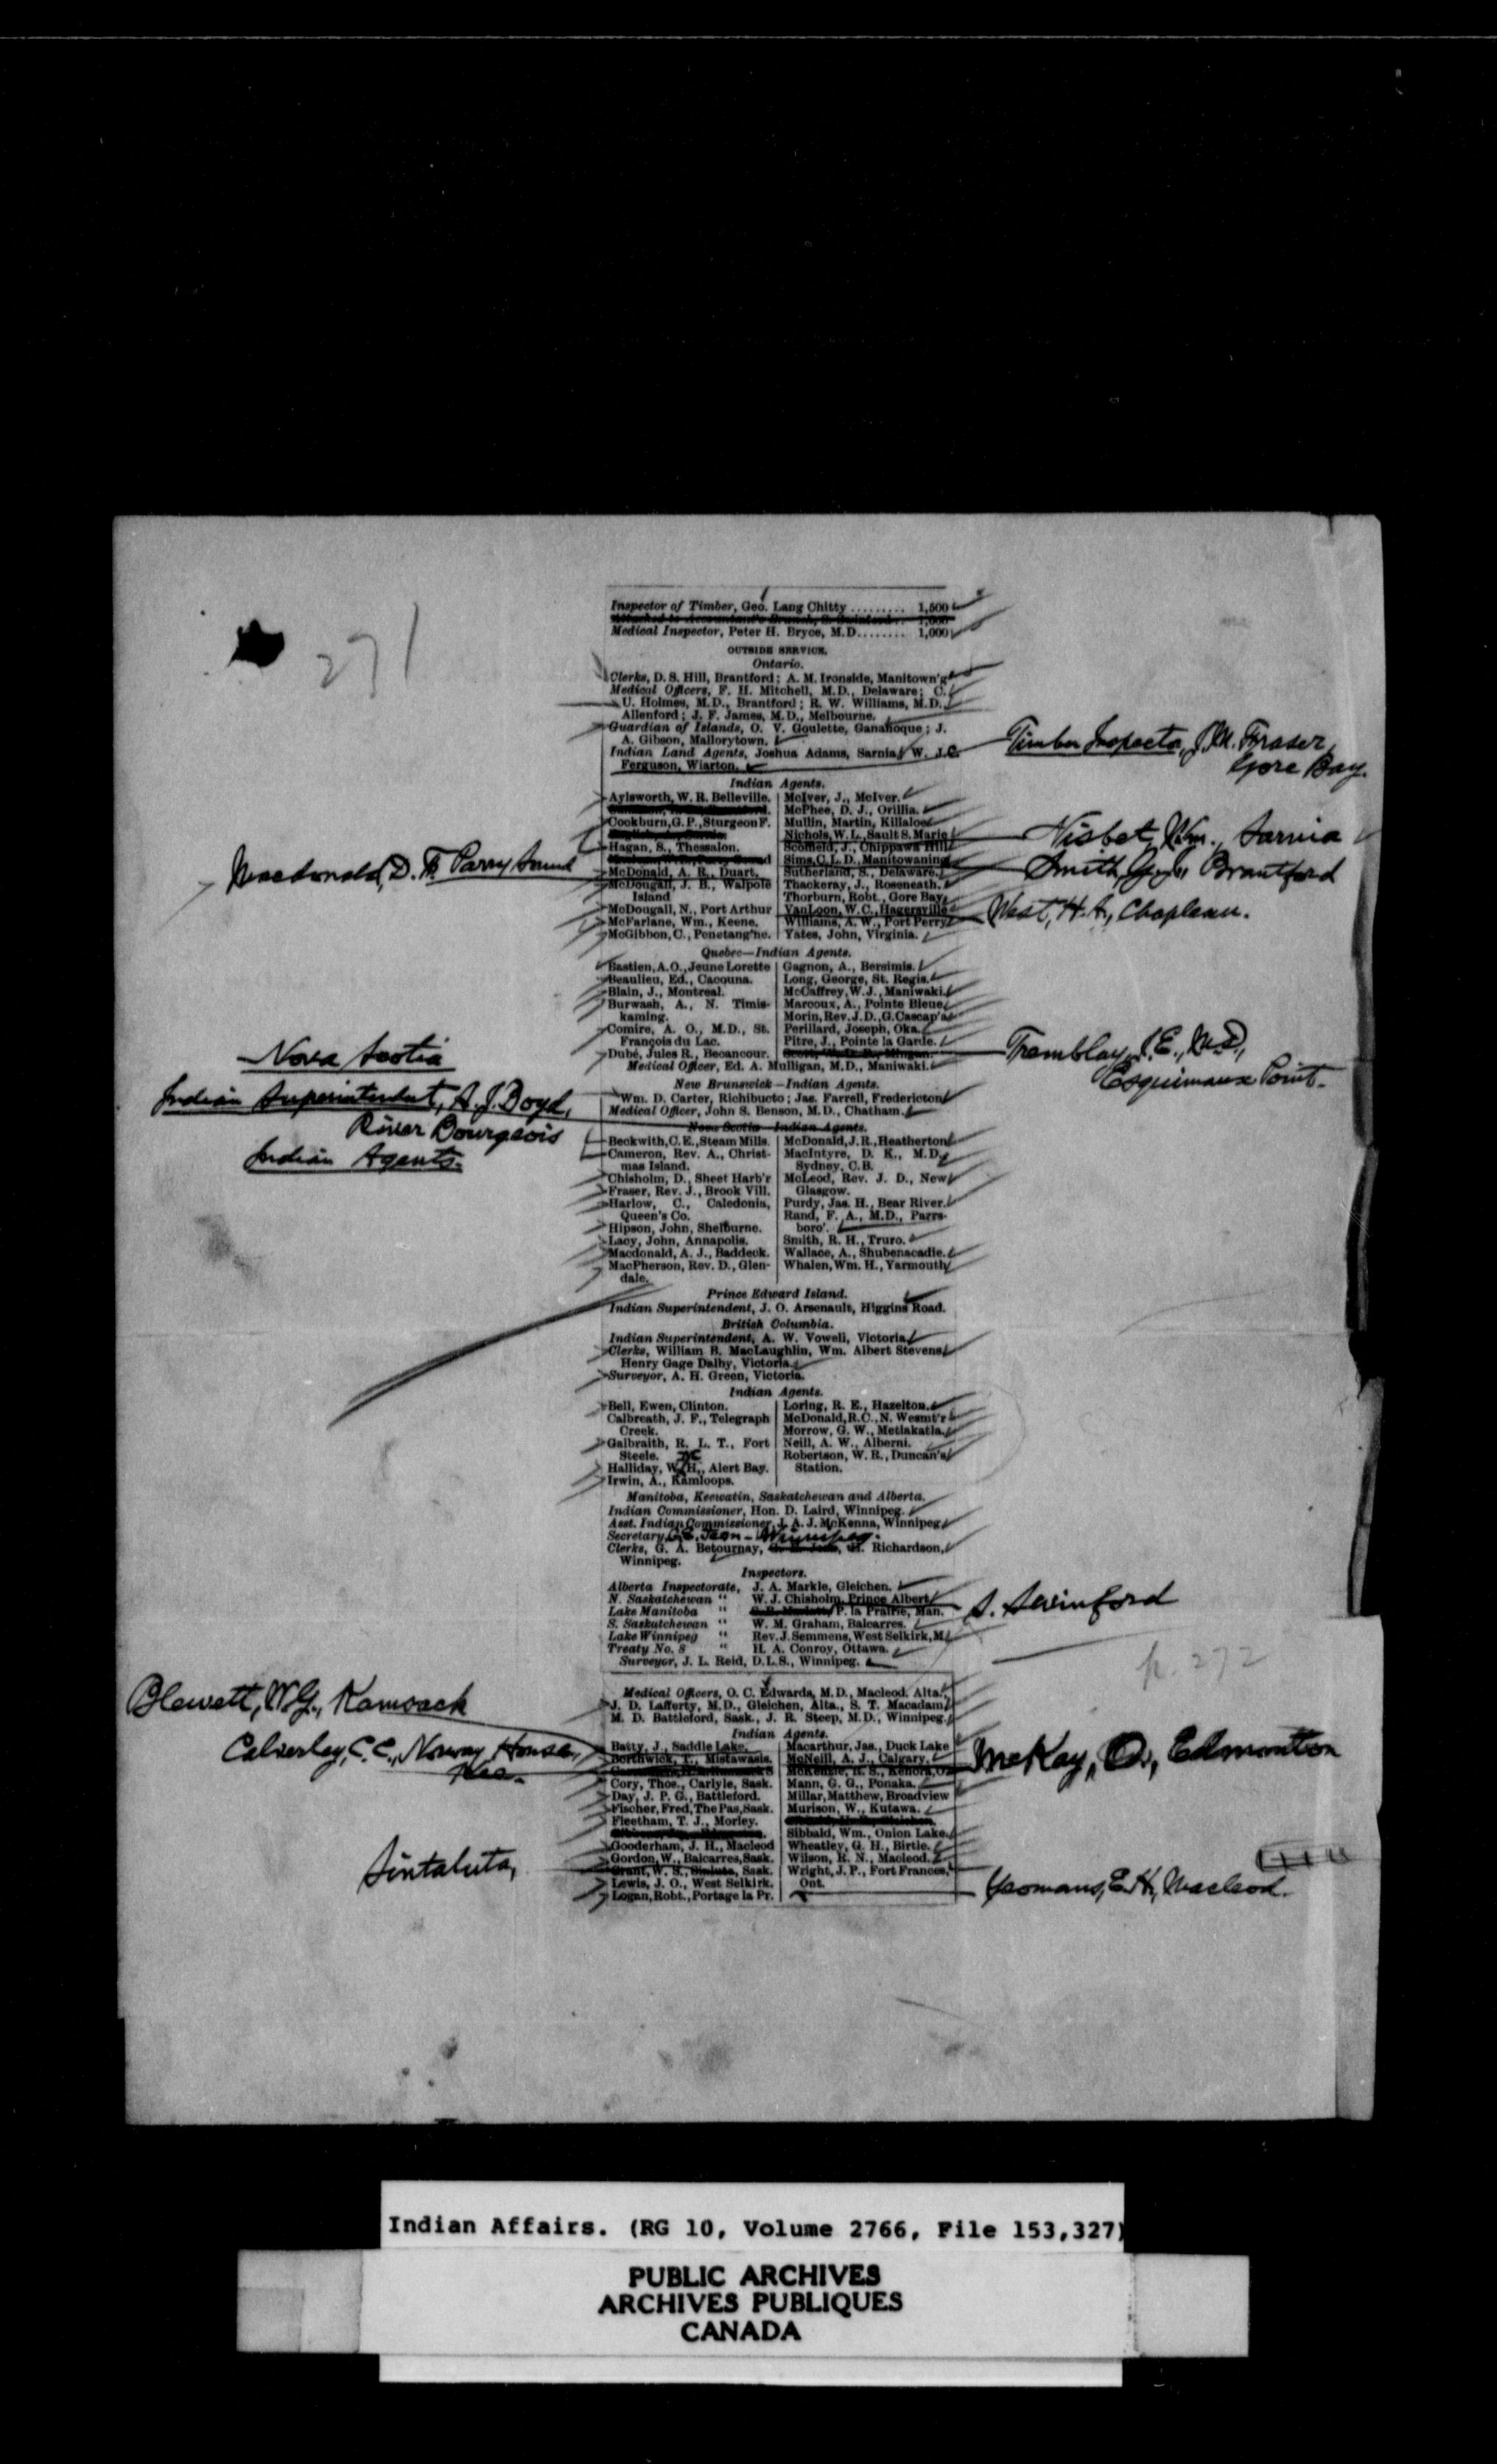 271
Inspector of Timber, Geo. Lang Chitty ......... 1,500
Medical Inspector, Peter H. Bryce, M.D........ 1,000
OUTSIDE SERVICE.
Ontario.
Clerks, D. S. Hill, Brantford; A. M. Ironside, Manitown'g
Medical Officers, F. H. Mitchell, M.D., Delaware; C.
U. Holmes, M.D., Brantford; R. W. Williams, M.D.
Allenford; J. F. James, M.D., Melbourne.
Guardian of Islands, O. V. Goulette, Gananoque; J.
A. Gibson, Mallorytown.
Indian Land Agents, Joshua Adams, Sarnia, W. J.
Ferguson, Wiarton.
Timber Inspector, J. M. Fraser,
Gore Bay.
Indian Agents.
Aylsworth, W. R. Belleville.
Cockburn, G. P., Sturgeon F.
Hagan, S., Thessalon.
Macdonald, D. F. Parry Sound
McDonald, A. R., Duart.
McDougall, J. B., Walpole
Island
McDougall, N., Port Arthur
McFarlane, Wm., Keene.
McGibbon, C., Penetang'ne.
McIver, J., McIver.
McPhee, D. J., Orillia.
Mullin, Martin, Killaloe
Nichols, W. L., Sault S. Marie
Nisbet, Wm., Sarnia
Scoffield, J., Chippawa Hill
Sims, C. L. D., Manitowaning
Smith, G. J., Brantford
Sutherland, S., Delaware.
Thackeray, J., Roseneath.
Thorburn, Robt., Gore Bay.
VanLoon, W. C., Hagersville
West, H. A., Chapleau.
Williams, A. W., Port Perry
Yates, John, Virginia.
Quebec—Indian Agents.
Bastien, A. O., Jeune Lorette
Beaulieu, Ed., Cacouna.
Blain, J., Montreal.
Burwash, A., N. Timis-
kaming.
Comire, A. O., M.D., St.
François du Lac.
Dubé, Jules R., Becancour.
Gagnon, A., Bersimis.
Long, George, St. Regis.
McCaffrey, W. J., Maniwaki.
Marcoux, A., Pointe Bleue.
Morin, Rev. J. D., G. Cascap'a
Perillard, Joseph, Oka.
Pitre, J., Pointe la Garde.
Tremblay, J. E., M.D.,
Esquimaux Point.
Medical Officer, Ed. A. Mulligan, M.D., Maniwaki.
New Brunswick—Indian Agents.
Wm. D. Carter, Richibucto; Jas. Farrell, Fredericton
Medical Officer, John S. Benson, M.D., Chatham.
Nova Scotia
Indian Superintendent, A. J. Boyd,
River Bourgeois
Indian Agents.
Nova Scotia—Indian Agents.
Beckwith, C. E., Steam Mills.
Cameron, Rev. A., Christ-
mas Island.
Chisholm, D., Sheet Harb'r
Fraser, Rev. J., Brook Vill.
Harlow, C., Caledonia,
Queen's Co.
Hipson, John, Shelburne.
Lacy, John, Annapolis.
Macdonald, A. J., Baddeck.
MacPherson, Rev. D., Glen-
dale.
McDonald, J. R., Heatherton
MacIntyre, D. K., M.D.,
Sydney, C.B.
McLeod, Rev. J. D., New
Glasgow.
Purdy, Jas. H., Bear River.
Rand, F. A., M.D., Parrs-
boro'.
Smith, R. H., Truro.
Wallace, A., Shubenacadie.
Whalen, Wm. H., Yarmouth
Prince Edward Island.
Indian Superintendent, J. O. Arsenault, Higgins Road.
British Columbia.
Indian Superintendent, A. W. Vowell, Victoria
Clerks, William B. MacLaughlin, Wm. Albert Stevens
Henry Gage Dalby, Victoria.
Surveyor, A. H. Green, Victoria.
Indian Agents.
Bell, Ewen, Clinton.
Calbreath, J. F., Telegraph
Creek.
Galbraith, R. L. T., Fort
Steele.
Halliday, W. H., Alert Bay.
Irwin, A., Kamloops.
Loring, R. E., Hazelton.
McDonald, R. C., N. Wesmt'r
Morrow, G. W., Metlakatla.
Neill, A. W., Alberni.
Robertson, W. R., Duncan's
Station.
Manitoba, Keewatin, Saskatchewan and Alberta.
Indian Commissioner, Hon. D. Laird, Winnipeg.
Asst. Indian Commissioner, J. A. J. McKenna, Winnipeg
Secretary, Winnipeg.
Clerks, G. A. Betournay, H. Richardson,
Winnipeg.
Inspectors.
Alberta Inspectorate, J. A. Markle, Gleichen.
N. Saskatchewan " W. J. Chisholm, Prince Albert
Lake Manitoba " P. la Prairie, Man.
S. Swinford
S. Saskatchewan " W. M. Graham, Balcarres.
Lake Winnipeg " Rev. J. Semmens, West Selkirk, M.
Treaty No. 8 " H. A. Conroy, Ottawa.
Surveyor, J. L. Reid, D.L.S., Winnipeg.
p. 272
Medical Officers, O. C. Edwards, M.D., Macleod, Alta.,
J. D. Lafferty, M.D., Gleichen, Alta., S. T. Macadam,
M. D. Battleford, Sask., J. R. Steep, M.D., Winnipeg.
Indian Agents.
Batty, J., Saddle Lake.
Blewett, W. G., Kamsack
Borthwick, T., Mistawasis.
Calverley, C. C., Norway House,
Kee.
Cory, Thos., Carlyle, Sask.
Day, J. P. G., Battleford.
Fischer, Fred, The Pas, Sask.
Fleetham, T. J., Morley.
Gooderham, J. H., Macleod
Gordon, W., Balcarres, Sask.
Grant, W. S., Sask.
Sintaluta,
Lewis, J. O., West Selkirk.
Logan, Robt., Portage la Pr.
Macarthur, Jas., Duck Lake
McKay, O., Edmonton
McNeill, A. J., Calgary.
McKenzie, R. S., Kenora, O.
Mann, G. G., Ponaka.
Millar, Matthew, Broadview
Murison, W., Kutawa.
Sibbald, Wm., Onion Lake.
Wheatley, G. H., Birtle.
Wilson, R. N., Macleod.
Wright, J. P., Fort Frances,
Ont.
Yeomans, E. H., Macleod.
Indian Affairs. (RG 10, Volume 2766, File 153,327)
PUBLIC ARCHIVES
ARCHIVES PUBLIQUES
CANADA